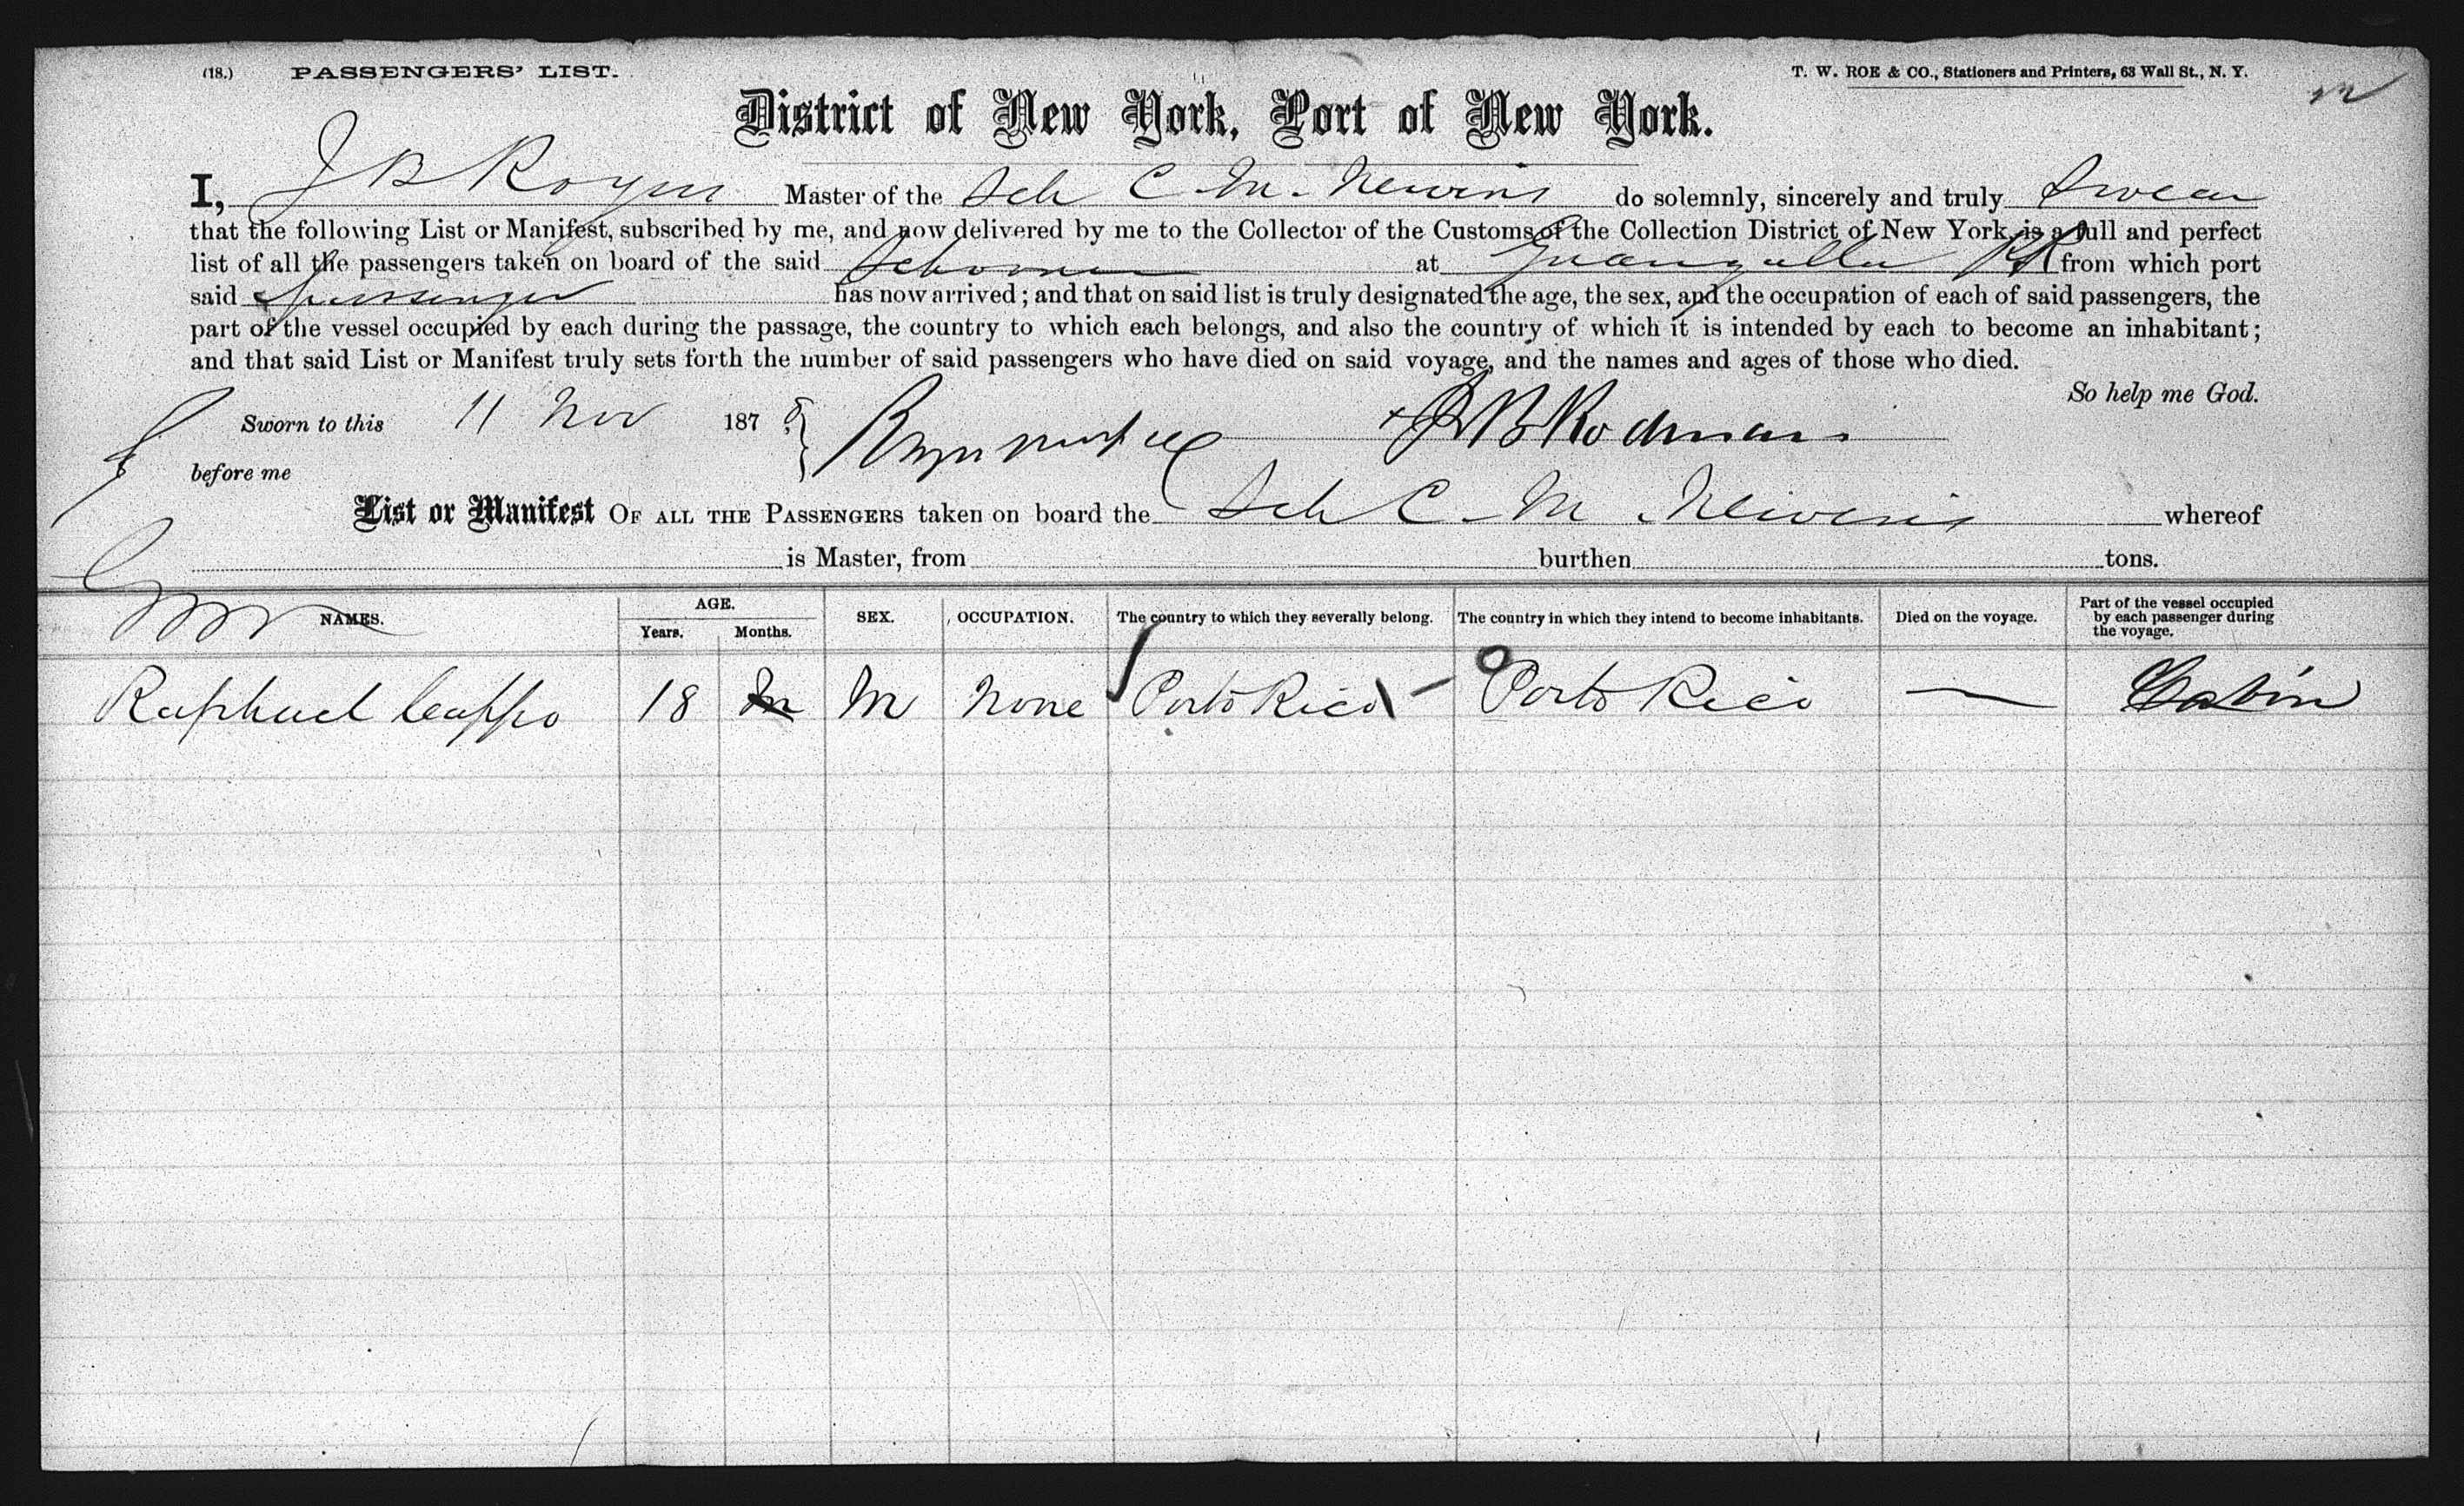 (18.) PASSENGERS' LIST. T. W. ROE & CO., Stationers and Printers, 63 Wall St., N. Y.
District of New York, Port of New York.
I, J B Master of the Sch C. M. Newins do solemnly, sincerely and truly Swear
that the following List or Manifest, subscribed by me, and now delivered by me to the Collector of the Customs of the Collection District of New York, is a full and perfect
list of all the passengers taken on board of the said Schooner at P R from which port
said passenger has now arrived; and that on said list is truly designated the age, the sex, and the occupation of each of said passengers, the
part of the vessel occupied by each during the passage, the country to which each belongs, and also the country of which it is intended by each to become an inhabitant;
and that said List or Manifest truly sets forth the number of said passengers who have died on said voyage, and the names and ages of those who died.
So help me God.
Sworn to this 11 Nov 1878 J B Rodman
before me
List or Manifest OF ALL THE PASSENGERS taken on board the Sch C. M. Newins whereof
is Master, from burthen tons.
NAMES. AGE. Years. Months. SEX. OCCUPATION. The country to which they severally belong. The country in which they intend to become inhabitants. Died on the voyage. Part of the vessel occupied by each passenger during the voyage.
Raphael 18 M None Porto Rico Porto Rico — Cabin